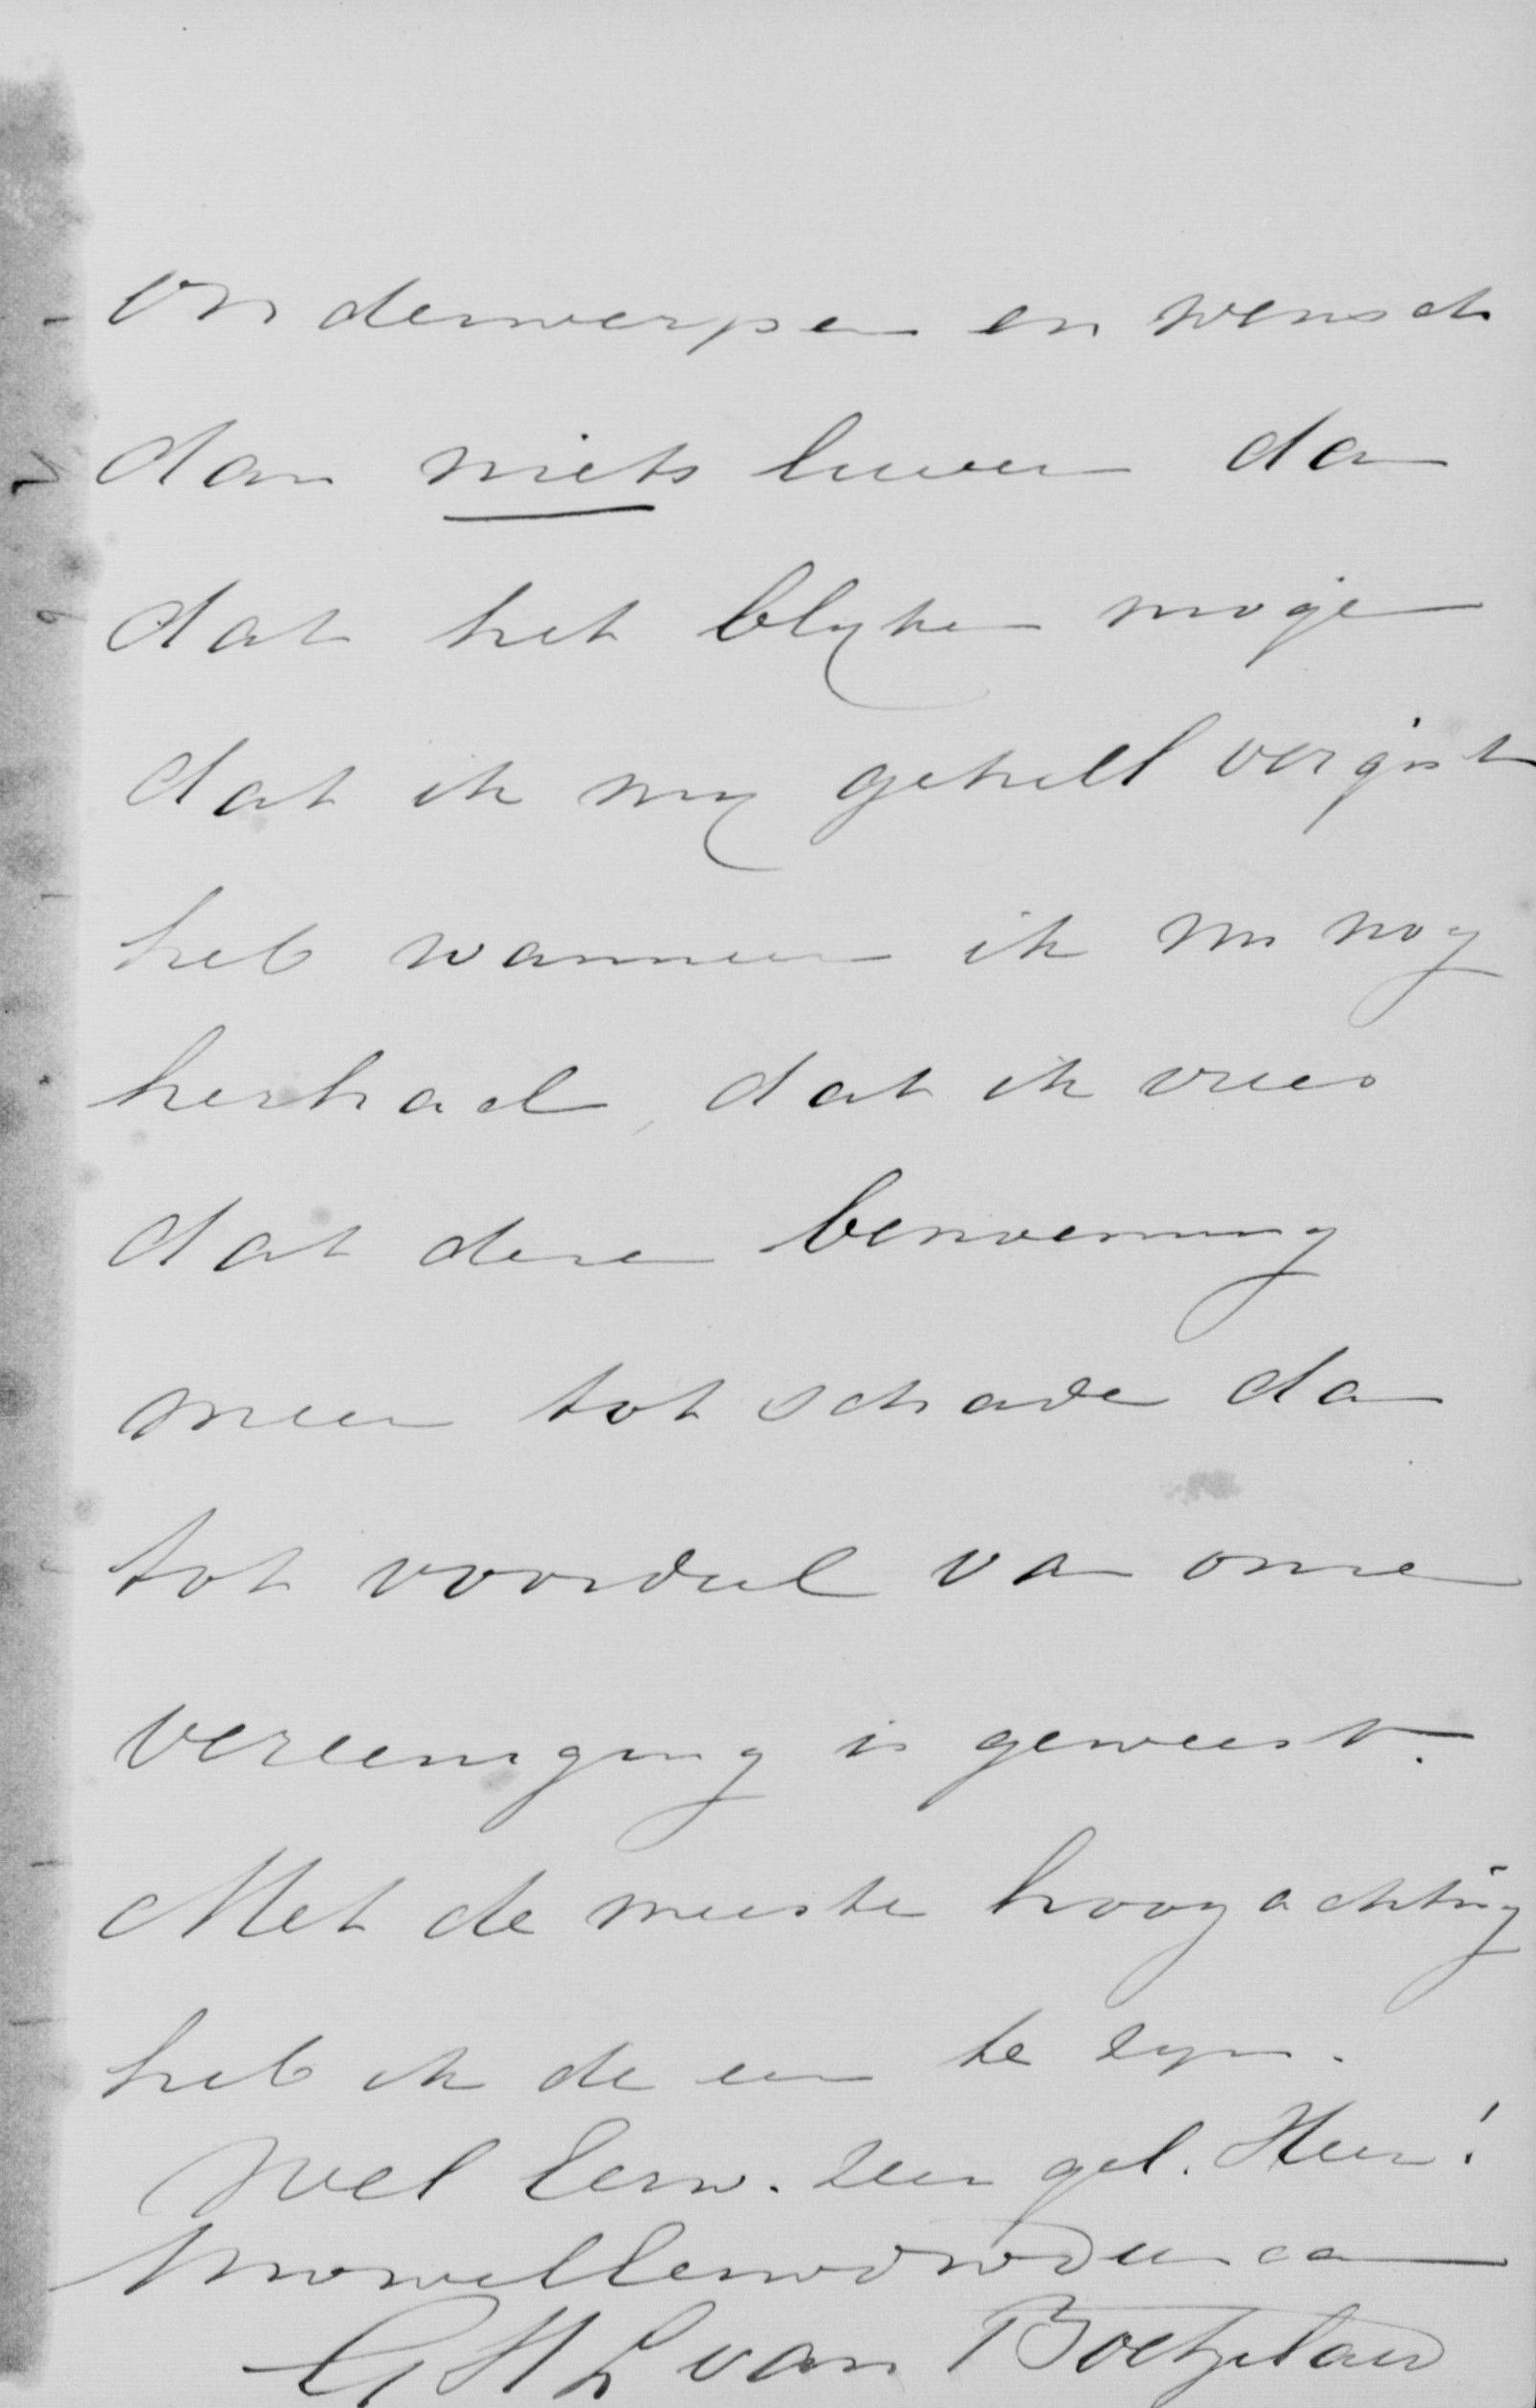 onderwerpen en wensch
dan niets liever dan
dat het blyken moge
dat ik my geheel vergist
heb wanneer ik nu nog
herhaal, dat ik vrees
dat deze benoeming
meer tot schade dan
tot voordeel van onze
vereeniging is geweest.
Met de meeste hoogachting
heb ik de eer te zyn.
Wel Eerw. zeer gel. Heer!
C H L van Boetzelaer